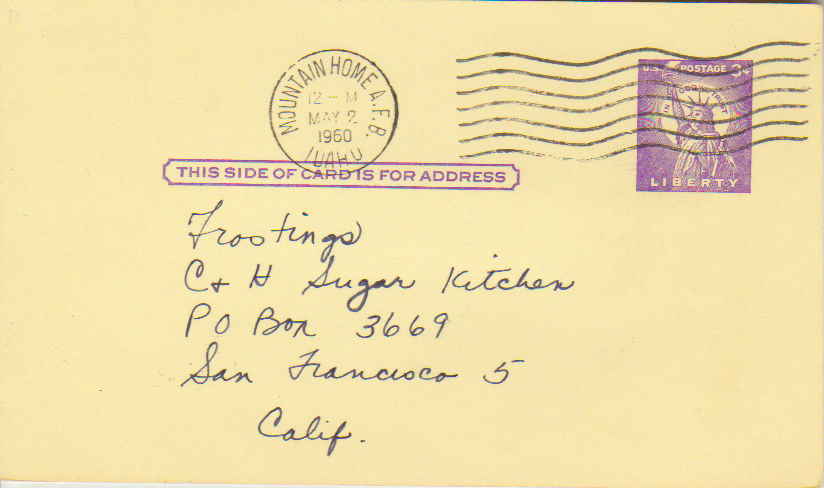 MOUNTAIN HOME A.F.B.
12 - M
MAY 2
1960
IDAHO
U.S. POSTAGE 3¢
IN GOD WE TRUST
LIBERTY
THIS SIDE OF CARD IS FOR ADDRESS
Frostings
C & H Sugar Kitchen
PO Box 3669
San Francisco 5
Calif.